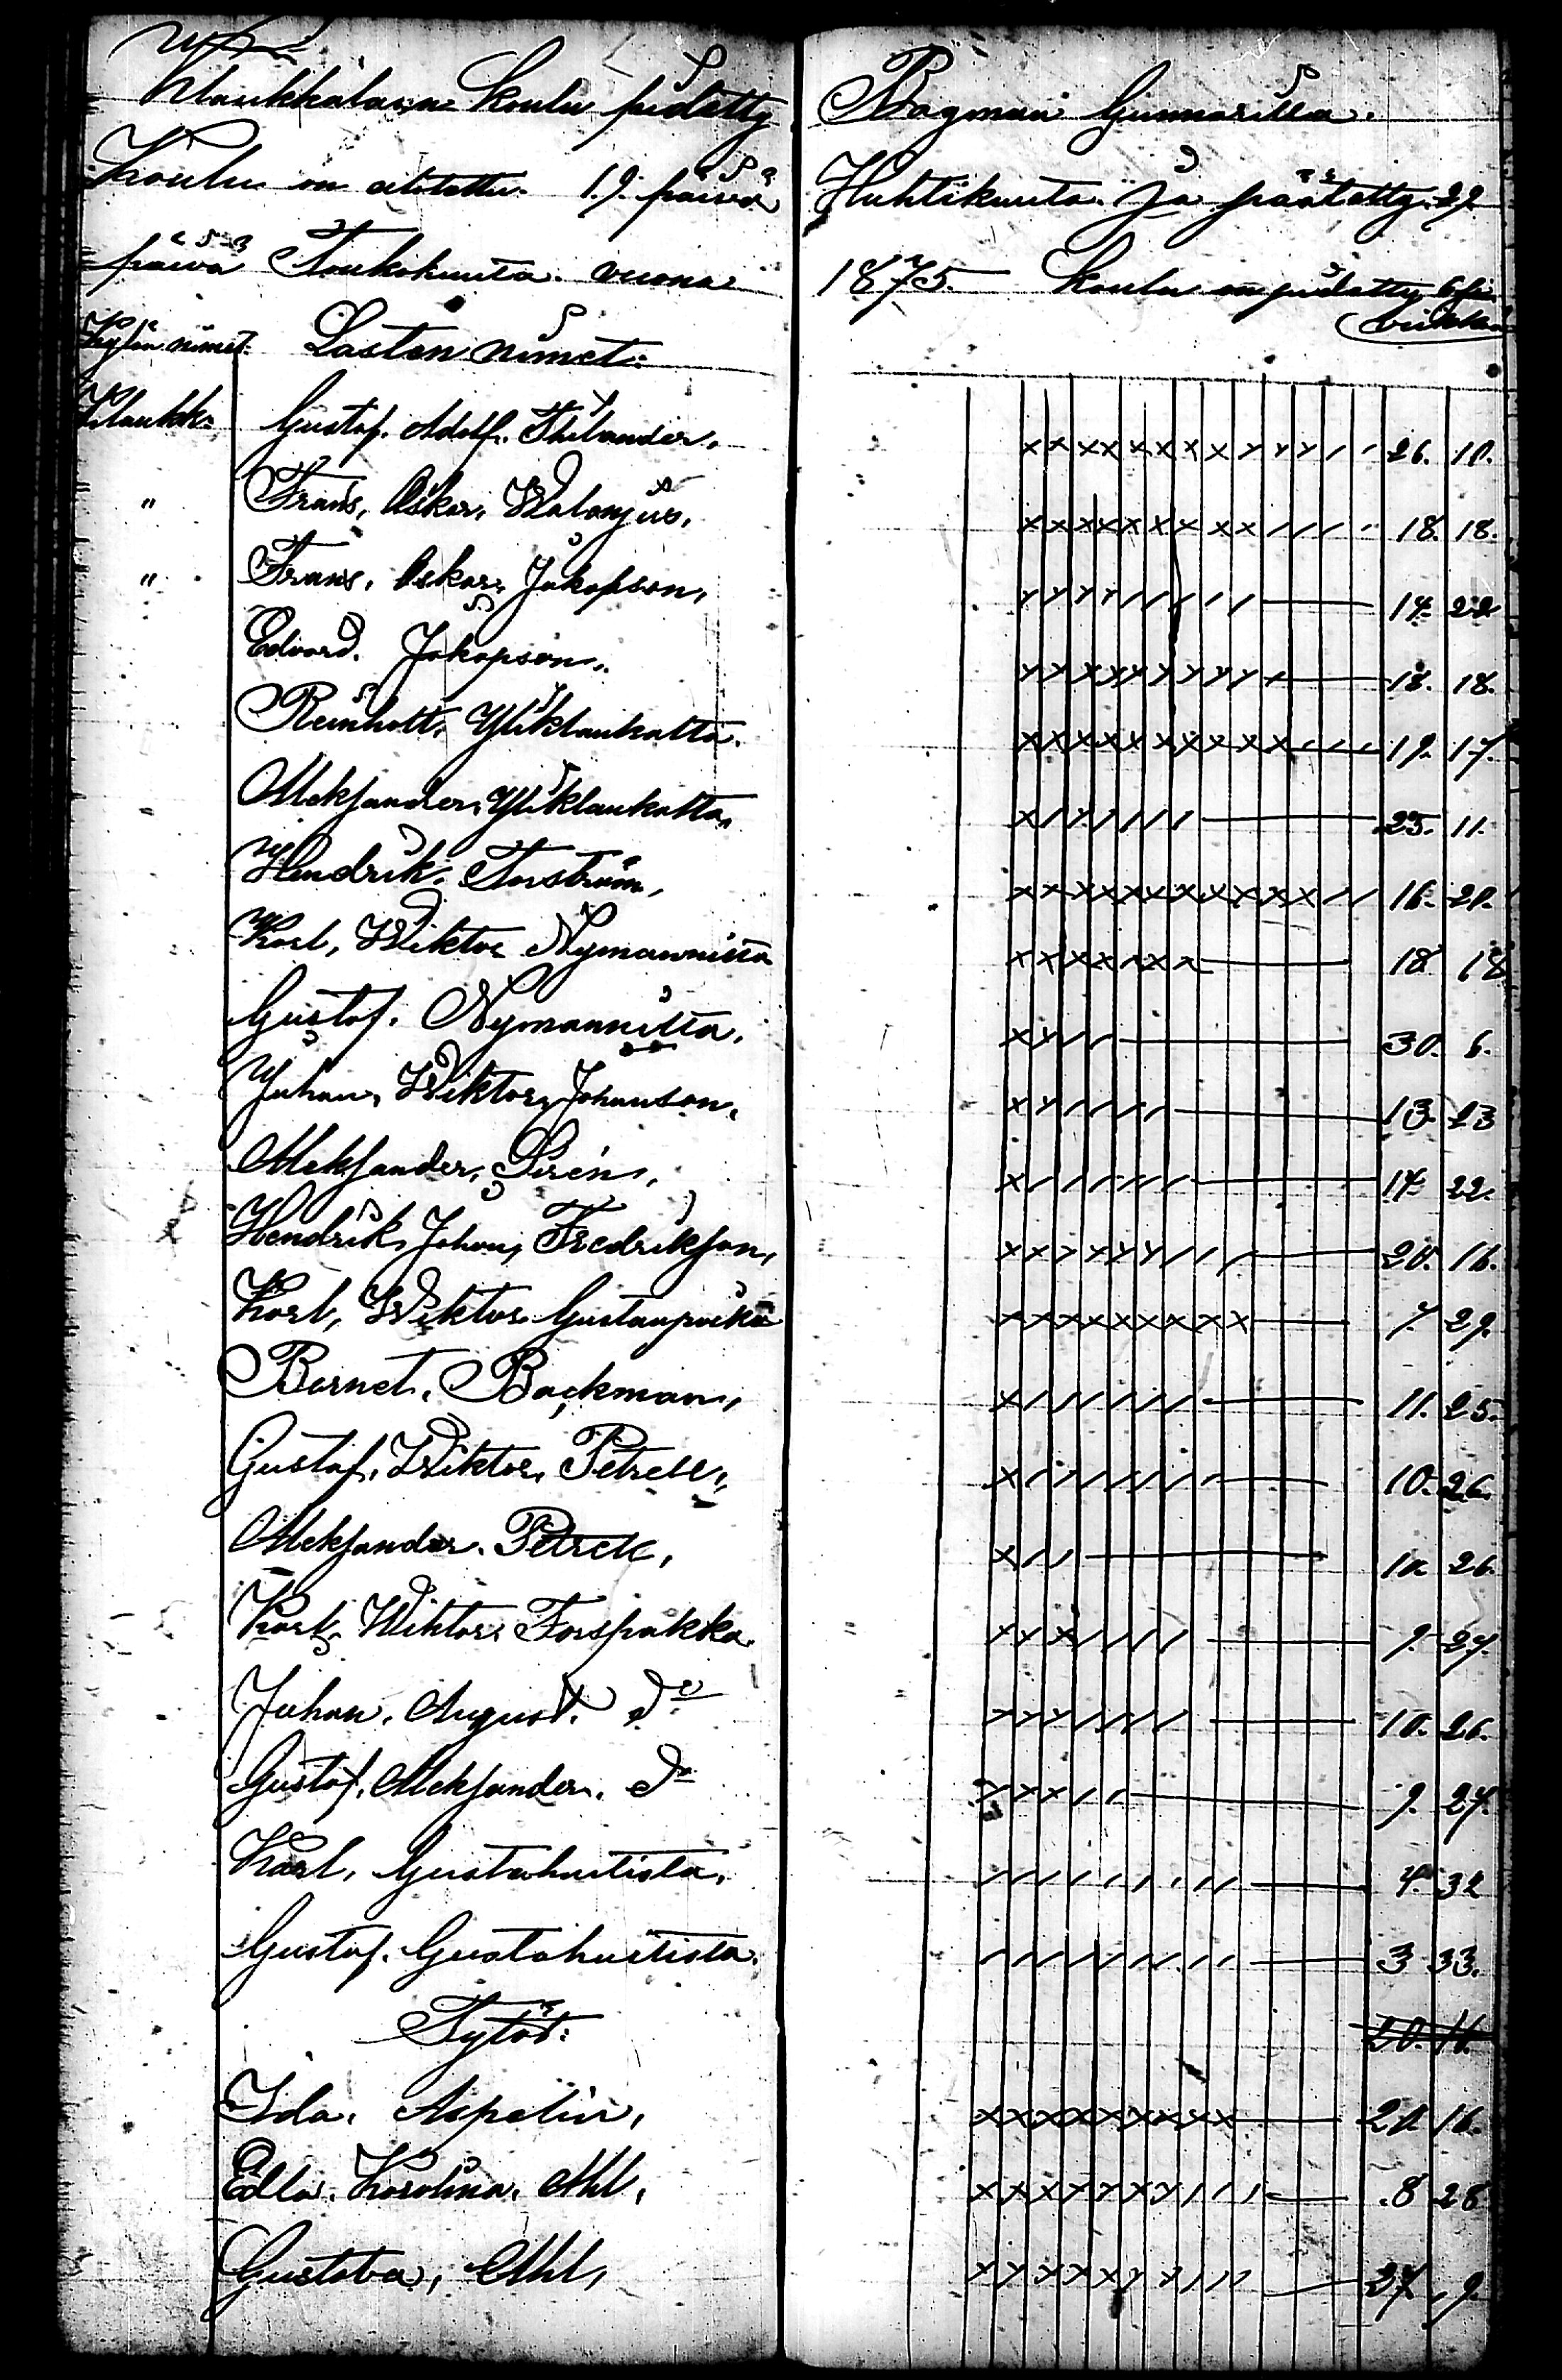 Klaukkalassa Koulu pidetty Bagman Gunnarilla.
Koulu on aloitettu 19. päivä Huhtikuuta ja päätetty 29
päivä Toukokuuta vuonna 1875. Koulu on pidetty 6
viikkoa
Kylän nimet. Lasten nimet:
Klaukk. Gustaf. Adolf. Thilander. 26. 10.
" Frans, Oskar, 18. 18.
" Frans, Oskar, Jakopson, 14. 22
Edvard. Jakopson. 18. 18.
Reinholt, Yliklaukatta. 19. 17.
Aleksander, Yliklaukatta, 25. 11.
Hendrik. Forström, 16. 20.
Karl, Wiktor Nymannista 18 18
Gustaf. Nymannista. 30. 6.
Juhan, Wiktor, Johanson, 13. 23
Aleksander, Siren, 14 22.
Hendrik, Johan, Fredrikson, 20. 16.
Karl, Wiktor 7. 29.
Bernet. Backman, 11. 25.
Gustaf, Wiktor, Petrell, 10. 26.
Aleksander. Petrell, 10. 26.
Karl, Wihtor. Forspakka. 9. 27.
Juhan, August. do 10. 26.
Gustaf, Aleksander. do 9. 27.
Karl, Gustahuitista. 4. 32
Gustaf. Gustahuitista. 3 33.
Tytöt: 20. 16.
Ida. Aspelin, 20. 16.
Edla. Karolina. Ahl, 8 28
Gustava, Ahl, 27, 9.